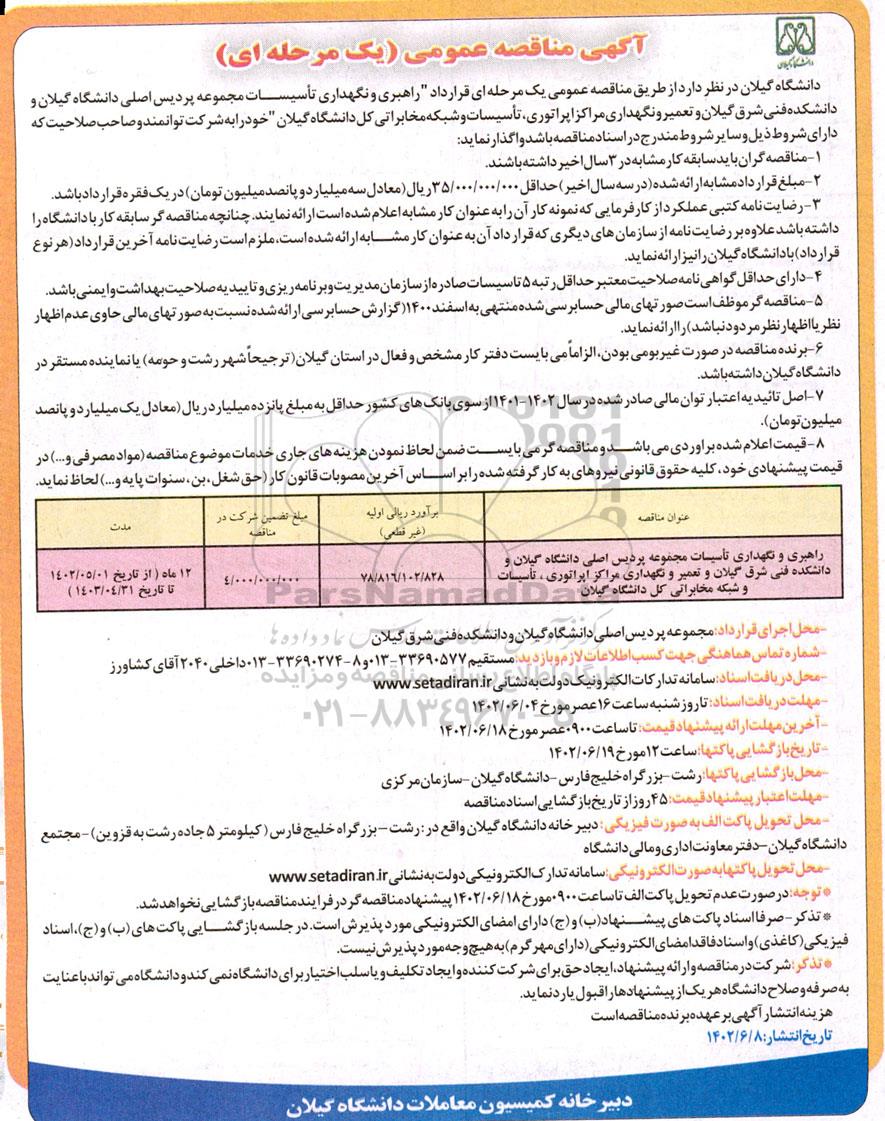 آگهی مناقصه عمومی (یک مرحله ای)
دانشگاه گیلان
دانشگاه گیلان در نظر دارد از طریق مناقصه عمومی یک مرحله ای قرارداد "راهبری و نگهداری تأسیسات مجموعه پردیس اصلی دانشگاه گیلان و
دانشکده فنی شرق گیلان و تعمیر و نگهداری مراکز اپراتوری، تأسیسات و شبکه مخابراتی کل دانشگاه گیلان" خود را به شرکت توانمند و صاحب صلاحیت که
دارای شروط ذیل و سایر شروط مندرج در اسناد مناقصه باشد واگذار نماید:
۱-مناقصه گران باید سابقه کار مشابه در ۳ سال اخیر داشته باشند.
۲-مبلغ قرارداد مشابه ارائه شده (در سه سال اخیر) حداقل ۳۵/۰۰۰/۰۰۰/۰۰۰ ریال (معادل سه میلیارد و پانصد میلیون تومان) در یک فقره قرارداد باشد.
۳-رضایت نامه کتبی عملکرد از کارفرمایی که نمونه کار آن را به عنوان کار مشابه اعلام شده است ارائه نمایند. چنانچه مناقصه گر سابقه کار با دانشگاه را
داشته باشد علاوه بر رضایت نامه از سازمان های دیگری که قرارداد آن به عنوان کار مشابه ارائه شده است، ملزم است رضایت نامه آخرین قرارداد (هر نوع
قرارداد) با دانشگاه گیلان را نیز ارائه نماید.
۴-دارای حداقل گواهی نامه صلاحیت معتبر حداقل رتبه ۵ تاسیسات صادره از سازمان مدیریت و برنامه ریزی و تاییدیه صلاحیت بهداشت و ایمنی باشد.
۵-مناقصه گر موظف است صورتهای مالی حسابرسی شده منتهی به اسفند ۱۴۰۰ (گزارش حسابرسی ارائه شده نسبت به صورتهای مالی حاوی عدم اظهار
نظر یا اظهار نظر مردود نباشد) را ارائه نماید.
۶-برنده مناقصه در صورت غیر بومی بودن، الزاماً می بایست دفتر کار مشخص و فعال در استان گیلان (ترجیحاً شهر رشت و حومه) یا نماینده مستقر در
دانشگاه گیلان داشته باشد.
۷-اصل تائیدیه اعتبار توان مالی صادر شده در سال ۱۴۰۲-۱۴۰۱ از سوی بانک های کشور حداقل به مبلغ پانزده میلیارد ریال (معادل یک میلیارد و پانصد
میلیون تومان).
۸-قیمت اعلام شده برآوردی می باشد و مناقصه گر می بایست ضمن لحاظ نمودن هزینه های جاری خدمات موضوع مناقصه (مواد مصرفی و...) در
قیمت پیشنهادی خود، کلیه حقوق قانونی نیروهای به کار گرفته شده را بر اساس آخرین مصوبات قانون کار (حق شغل، بن، سنوات پایه و...) لحاظ نماید.
عنوان مناقصه
برآورد ریالی اولیه
(غیر قطعی)
مبلغ تضمین شرکت در
مناقصه
مدت
راهبری و نگهداری تأسیسات مجموعه پردیس اصلی دانشگاه گیلان و
دانشکده فنی شرق گیلان و تعمیر و نگهداری مراکز اپراتوری ، تأسیسات
و شبکه مخابراتی کل دانشگاه گیلان
۷۸/۸۱۶/۱۰۲/۸۲۸
۴/۰۰۰/۰۰۰/۰۰۰
۱۲ ماه ( از تاریخ ۱۴۰۲/۰۵/۰۱
تا تاریخ ۱۴۰۳/۰۴/۳۱ )
ParsNamadData
-محل اجرای قرارداد: مجموعه پردیس اصلی دانشگاه گیلان و دانشکده فنی شرق گیلان
-شماره تماس هماهنگی جهت کسب اطلاعات لازم و بازدید: مستقیم ۳۳۶۹۰۵۷۷-۰۱۳ و ۸-۳۳۶۹۰۲۷۴-۰۱۳ داخلی ۲۰۴۰ آقای کشاورز
-محل دریافت اسناد: سامانه تدارکات الکترونیک دولت به نشانی www.setadiran.ir
پایگاه اطلاع رسانی مناقصه و مزایده
-مهلت دریافت اسناد: تا روز شنبه ساعت ۱۶ عصر مورخ ۱۴۰۲/۰۶/۰۴
۰۲۱-۸۸۳۴۹۶۷۰-۵
-آخرین مهلت ارائه پیشنهاد قیمت: تا ساعت ۰۹۰۰ عصر مورخ ۱۴۰۲/۰۶/۱۸
-تاریخ بازگشایی پاکتها: ساعت ۱۲ مورخ ۱۴۰۲/۰۶/۱۹
-محل بازگشایی پاکتها: رشت-بزرگراه خلیج فارس-دانشگاه گیلان-سازمان مرکزی
-مهلت اعتبار پیشنهاد قیمت: ۴۵ روز از تاریخ بازگشایی اسناد مناقصه
-محل تحویل پاکت الف به صورت فیزیکی: دبیرخانه دانشگاه گیلان واقع در: رشت-بزرگراه خلیج فارس (کیلومتر ۵ جاده رشت به قزوین)-مجتمع
دانشگاه گیلان-دفتر معاونت اداری و مالی دانشگاه
-محل تحویل پاکتها به صورت الکترونیکی: سامانه تدارک الکترونیکی دولت به نشانی www.setadiran.ir
*توجه: در صورت عدم تحویل پاکت الف تا ساعت ۰۹۰۰ مورخ ۱۴۰۲/۰۶/۱۸ پیشنهاد مناقصه گر در فرایند مناقصه بازگشایی نخواهد شد.
*تذکر-صرفا اسناد پاکت های پیشنهاد (ب) و (ج) دارای امضای الکترونیکی مورد پذیرش است. در جلسه بازگشایی پاکت های (ب) و (ج)، اسناد
فیزیکی (کاغذی) و اسناد فاقد امضای الکترونیکی (دارای مهر گرم) به هیچ وجه مورد پذیرش نیست.
*تذکر: شرکت در مناقصه و ارائه پیشنهاد، ایجاد حق برای شرکت کننده و ایجاد تکلیف و یا سلب اختیار برای دانشگاه نمی کند و دانشگاه می تواند با عنایت
به صرفه و صلاح دانشگاه هر یک از پیشنهادها را قبول یا رد نماید.
هزینه انتشار آگهی بر عهده برنده مناقصه است
تاریخ انتشار: ۱۴۰۲/۶/۸
دبیرخانه کمیسیون معاملات دانشگاه گیلان